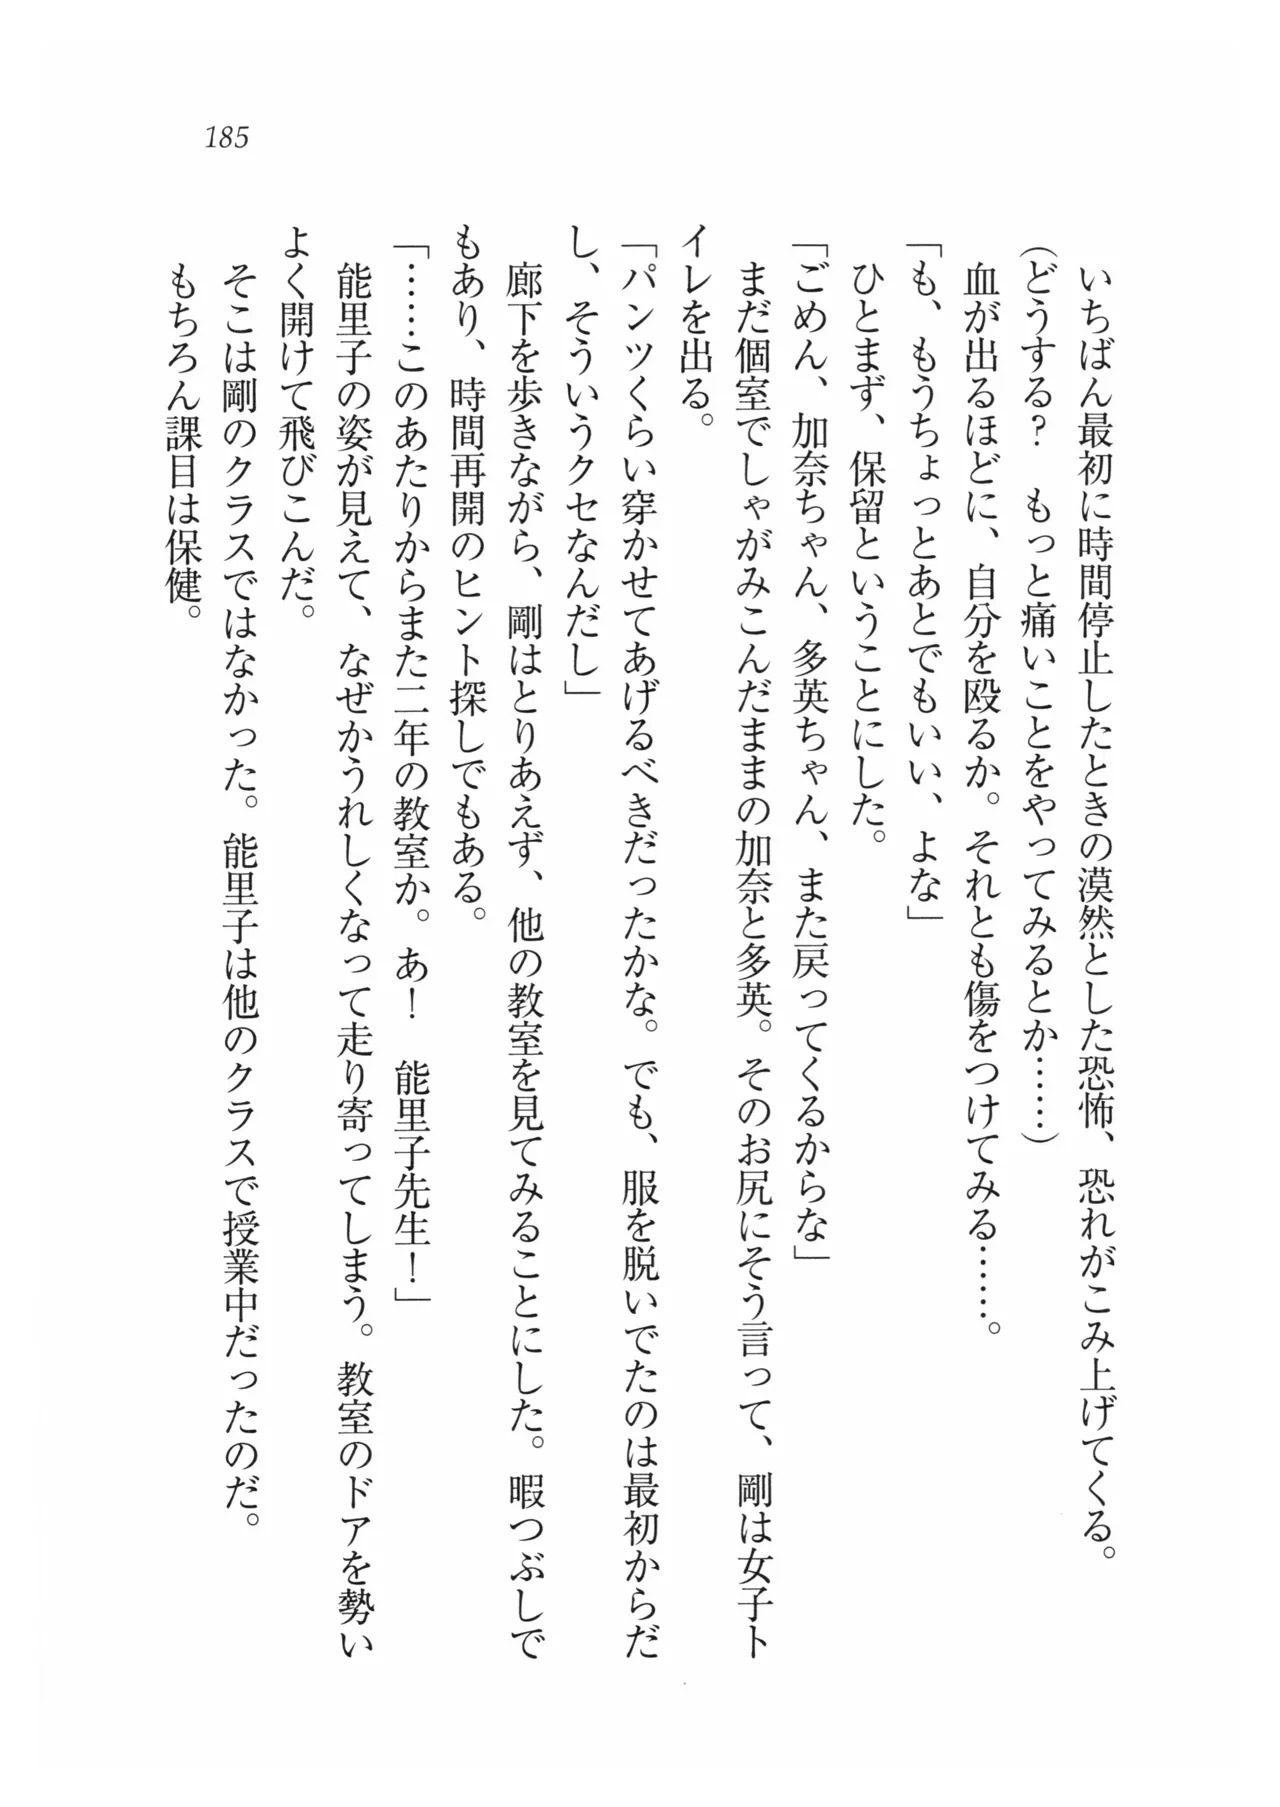 185
いちばん最初に時間停止したときの漠然とした恐怖、恐れがこみ上げてくる。
(どうする？　もっと痛いことをやってみるとか……)
血が出るほどに、自分を殴るか。それとも傷をつけてみる……。
「も、もうちょっとあとでもいい、よな」
ひとまず、保留ということにした。
「ごめん、加奈ちゃん、多英ちゃん、また戻ってくるからな」
まだ個室でしゃがみこんだままの加奈と多英。そのお尻にそう言って、剛は女子ト
イレを出る。
「パンツくらい穿かせてあげるべきだったかな。でも、服を脱いでたのは最初からだ
し、そういうクセなんだし」
廊下を歩きながら、剛はとりあえず、他の教室を見てみることにした。暇つぶしで
もあり、時間再開のヒント探しでもある。
「……このあたりからまた二年の教室か。あ！　能里子先生！」
能里子の姿が見えて、なぜかうれしくなって走り寄ってしまう。教室のドアを勢い
よく開けて飛びこんだ。
そこは剛のクラスではなかった。能里子は他のクラスで授業中だったのだ。
もちろん課目は保健。